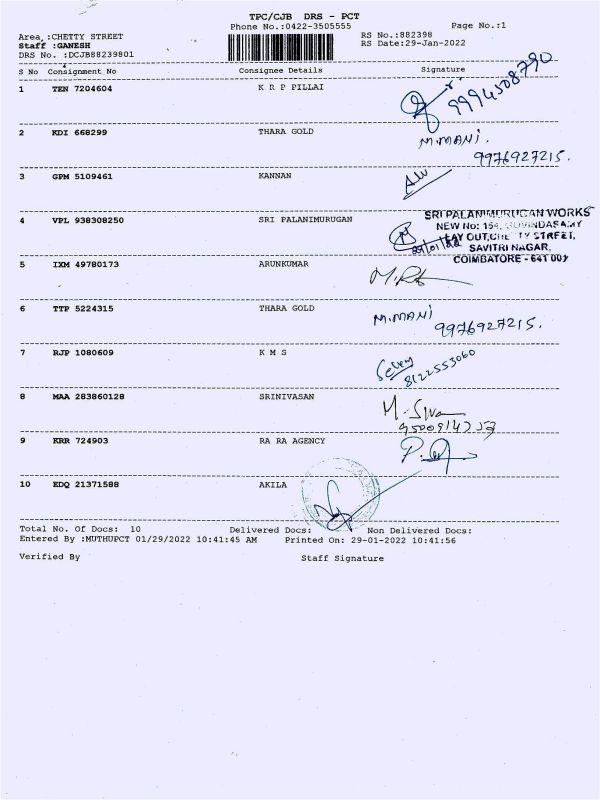 TPC/CJB DRS - PCT
Phone No.:0422-3505555
Page No.:1
Area :CHETTY STREET
RS No.:882398
Staff :GANESH
RS Date:29-Jan-2022
DRS No. :DCJB88239801
S No Consignment No Consignee Details Signature
1 TEN 7204604 K R P PILLAI
9994508790
2 KDI 668299 THARA GOLD
M.MANI.
9976927215.
3 GPM 5109461 KANNAN
4 VPL 938308250 SRI PALANIMURUGAN
SRI PALANIMURUGAN WORKS
NEW No: 154,
SAVITRI NAGAR,
COIMBATORE - 641 001
5 IXM 49780173 ARUNKUMAR
6 TTP 5224315 THARA GOLD
M.MANI
9976927215.
7 RJP 1080609 K M S
8122553060
8 MAA 283860128 SRINIVASAN
9 KRR 724903 RA RA AGENCY
10 EDQ 21371588 AKILA
Total No. Of Docs: 10 Delivered Docs: Non Delivered Docs:
Entered By :MUTHUPCT 01/29/2022 10:41:45 AM Printed On: 29-01-2022 10:41:56
Verified By Staff Signature